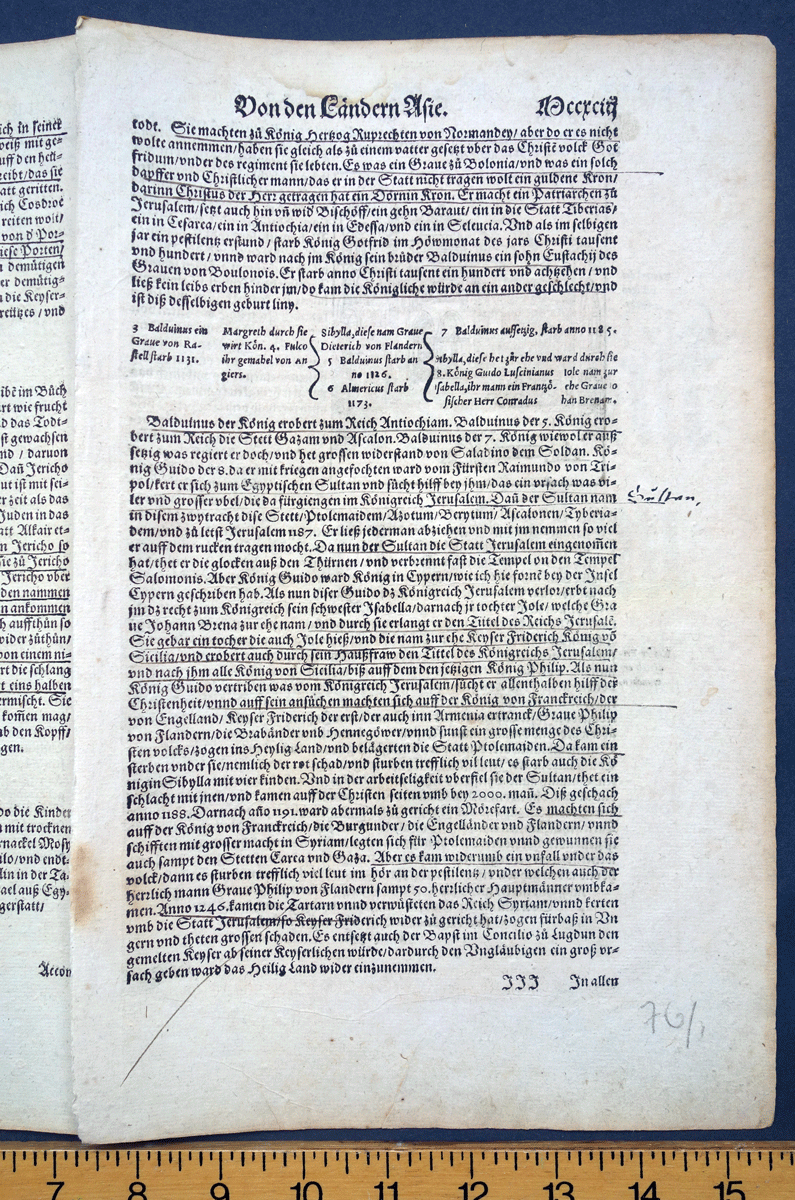 ich in seinet
weiß mit ge-
auff den heli-
reibt/das sie
att geritten.
ich Cosdroe
reiten wolt/
von d Por-
iese Porten/
n demütigen
er demütig-
n die Keyser-
reützes / vnd
ibē im Büch
art wie frucht
d das Todt-
st gewachsen
nd / daruon
Dañ Jericho
ut ist mit sei-
r zeit als das
Juden in das
att Alkair et-
n Jericho so
sie zů Jericho
Jericho vber
den nammen
n ankommen
h auffthůn so
wider zůthůn/
von einem ni-
rt die schlang
rt eins halben
ermischt. Sie
komen mag/
mb den Kopff/
gen.
do die Kinder
mit trocknen
rnackel Mosy
ilo/vnd endt-
lin in der Ta-
ael auß Egy-
gerstatt/
Accon
Von den Ländern Asie. Mccxciij
todt. Sie machten zů König Hertzog Ruprechten von Normandey/ aber do er es nicht
wolte annemmen/haben sie gleich als zů einem vatter gesetzt vber das Christē volck Got
fridum/vnder des regiment sie lebten. Es was ein Graue zů Bolonia/vnd was ein solch
dapffer vnd Christlicher mann/das er in der Statt nicht tragen wolt ein guldene Kron/
darinn Christus der Herr getragen hat ein Dörnin Kron. Er macht ein Patriarchen zů
Jerusalem/setzt auch hin vñ wid Bischöff/ein gehn Baraut/ ein in die Statt Tiberias/
ein in Cesarea/ein in Antiochia/ein in Edessa/vnd ein in Seleucia. Vnd als im selbigen
jar ein pestilentz erstund / starb König Gotfrid im Höwmonat des jars Christi tausent
vnd hundert / vnnd ward nach jm König sein brůder Balduinus ein sohn Eustachij des
Grauen von Boulonois. Er starb anno Christi tausent ein hundert vnd achtzehen / vnd
ließ kein leibs erben hinder jm/do kam die Königliche würde an ein ander geschlecht/vnd
ist diß desselbigen geburt liny.
3 Balduinus ein
Graue von Ra-
stell starb 1131.
Margreth durch sie
wirt Kön. 4. Fulco
ihr gemahel von An
giers.
Sibylla, diese nam Graue
Dieterich von Flandern
5 Balduinus starb an
no 1126.
6 Almericus starb
1173.
7 Balduinus aussetzig, starb anno 1185.
Sibylla, diese het zůr ehe vnd ward durch sie
8. König Guido Luscinianus
Isabella, ihr mann ein Frantzö-
sischer Herr Conradus
Iole nam zur
ehe Graue o
han Brenam.
Balduinus der König erobert zum Reich Antiochiam. Balduinus der 5. König ero-
bert zum Reich die Stett Gazam vnd Ascalon. Balduinus der 7. König wiewol er auß
setzig was regiert er doch/vnd het grossen widerstand von Saladino dem Soldan. Kö-
nig Guido der 8. da er mit kriegen angefochten ward vom Fürsten Raimundo von Tri-
pol/kert er sich zum Egyptischen Sultan vnd sůcht hilff bey jhm/das ein vrsach was vi-
ler vnd grosser vbel/die da fürgiengen im Königreich Jerusalem. Dañ der Sultan nam
in disem zwytracht dise Stett/Ptolemaidem/Azotum/Berytum/Ascalonen/Tyberia-
dem/vnd zů letst Jerusalem 1187. Er ließ jederman abziehen vnd mit jm nemmen so viel
er auff dem rucken tragen mocht. Da nun der Sultan die Statt Jerusalem eingenommen
hat/thet er die glocken auß den Thürnen / vnd verbrennt fast die Tempel on den Tempel
Salomonis. Aber König Guido ward König in Cypern/wie ich hie fornē bey der Insel
Cypern geschriben hab. Als nun diser Guido dz Königreich Jerusalem verlor/erbt nach
jm dz recht zum Königreich sein schwester Isabella/darnach jr tochter Jole/ welche Gra
ue Johann Brena zur ehe nam / vnd durch sie erlangt er den Tittel des Reichs Jerusalē.
Sie gebar ein tocher die auch Jole hieß/vnd die nam zur ehe Keyser Friderich König vō
Sicilia/vnd erobert auch durch sein Haußfraw den Tittel des Königreichs Jerusalem/
vnd nach jhm alle König von Sicilia/biß auff dem den jetzigen König Philip. Als nun
König Guido vertriben was vom Königreich Jerusalem/sůcht er allenthalben hilff der
Christenheit/vnnd auff sein ansůchen machten sich auff der König von Franckreich/der
von Engelland/ Keyser Friderich der erst/der auch inn Armenia ertranck/Graue Philip
von Flandern/die Brabänder vnb Hennegöwer/vnnd sunst ein grosse menge des Chri-
sten volcks/zogen ins Heylig Land/vnd belägerten die Statt Ptolemaiden. Da kam ein
sterben vnder sie/nemlich der rot schad/vnd sturben trefflich vil leut/ es starb auch die Kö
nigin Sibylla mit vier kinden. Vnd in der arbeitseligkeit vberfiel sie der Sultan/thet ein
schlacht mit jnen/vnd kamen auff der Christen seiten vmb bey 2000. mañ. Diß geschach
anno 1188. Darnach año 1191. ward abermals zů gericht ein Mörefart. Es machten sich
auff der König von Franckreich/die Burgunder/ die Engelländer vnd Flandern/ vnnd
schifften mit grosser macht in Syriam/legten sich für Ptolemaiden vnnd gewunnen sie
auch sampt den Stetten Carea vnd Gaza. Aber es kam widerumb ein vnfall vnder das
volck/dann es sturben trefflich viel leut im hör an der pestilentz / vnder welchen auch der
herrlich mann Graue Philip von Flandern sampt 50. herrlicher Hauptmänner vmbka-
men. Anno 1246. kamen die Tartarn vnnd verwüsteten das Reich Syriam/vnnd kerten
vmb die Statt Jerusalem/so Keyser Friderich wider zů gericht hat/zogen fürbaß in Vn
gern vnd theten grossen schaden. Es entsetzt auch der Bapst im Concilio zů Lugdun den
gemelten Keyser ab seiner Keyserlichen würde/dardurch den Vngläubigen ein groß vr-
sach geben ward das Heilig Land wider einzunemmen.
JJJ In allen
Sultan,
76/1
7 8 9 10 11 12 13 14 15